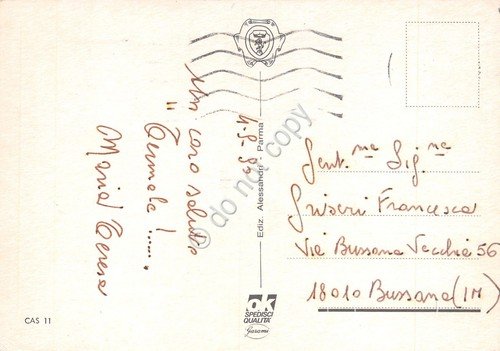 Un caro saluto
"Termale!.....
Maria Teresa
4.9.90
Ediz. Alessandri - Parma
do not copy
Gent.ma Sig.na
Griseri Francesca
Via Bussana Vecchia 56
18010 Bussana (IM)
ok
SPEDISCI
QUALITÀ
Garami
CAS 11